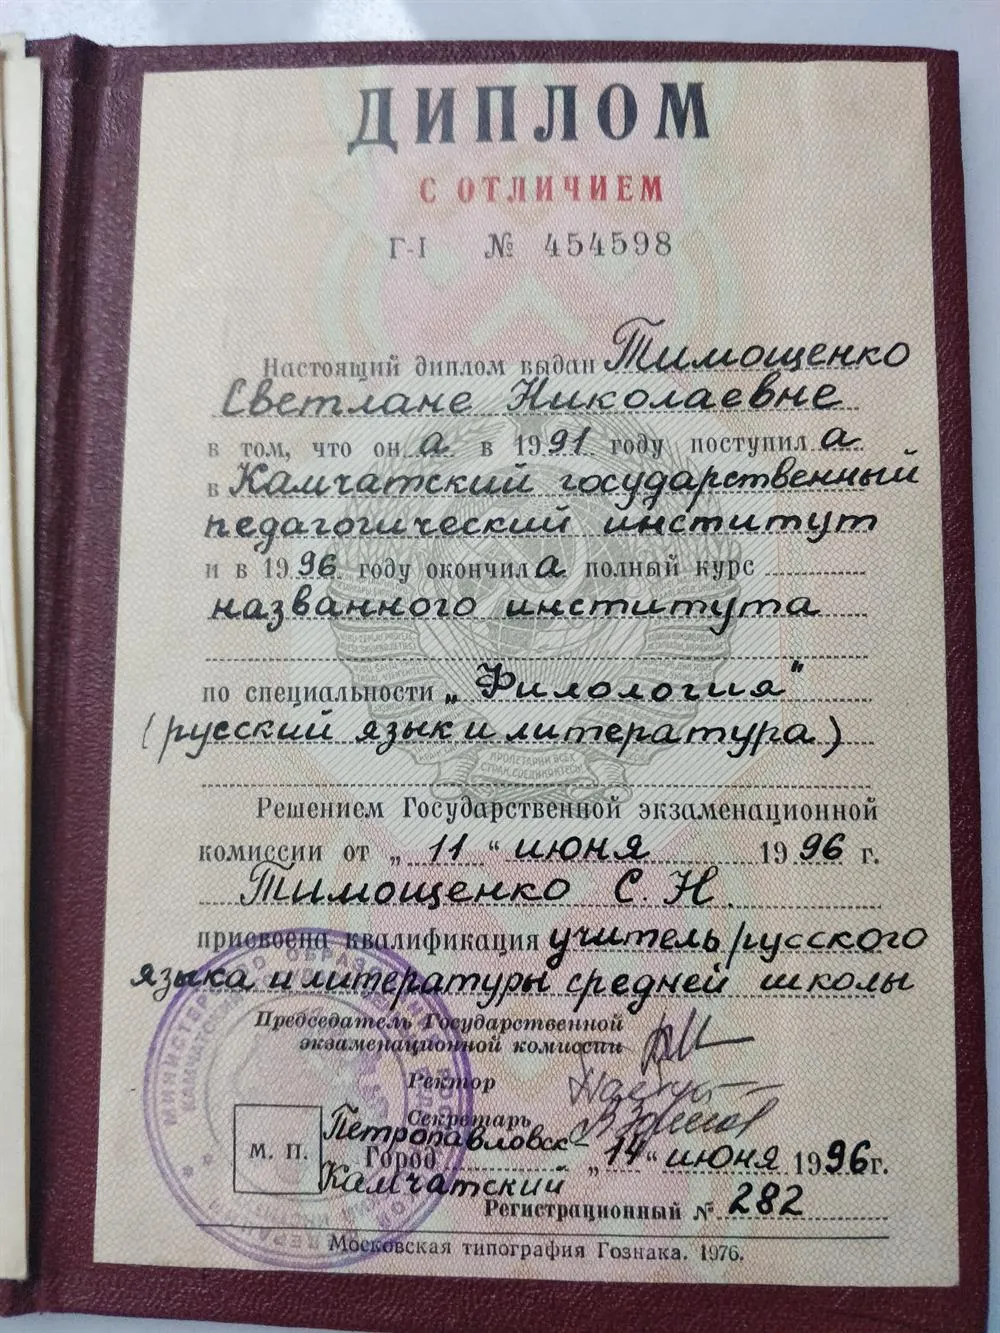 ДИПЛОМ
С ОТЛИЧИЕМ
Г-I № 454598
Настоящий диплом выдан Тимощенко
Светлане Николаевне
в том, что он а в 1991 году поступил а
в Камчатский государственный
педагогический институт
и в 1996 году окончил а полный курс
названного института
по специальности „Филология"
(русский язык и литература)
Решением Государственной экзаменационной
комиссии от „11" июня 1996 г.
Тимощенко С. Н.
присвоена квалификация учитель русского
языка и литературы средней школы
Председатель Государственной
экзаменационной комиссии
Ректор
Секретарь
Петропавловск-
М. П. Город „14" июня 1996г.
Камчатский
Регистрационный № 282
Московская типография Гознака. 1976.